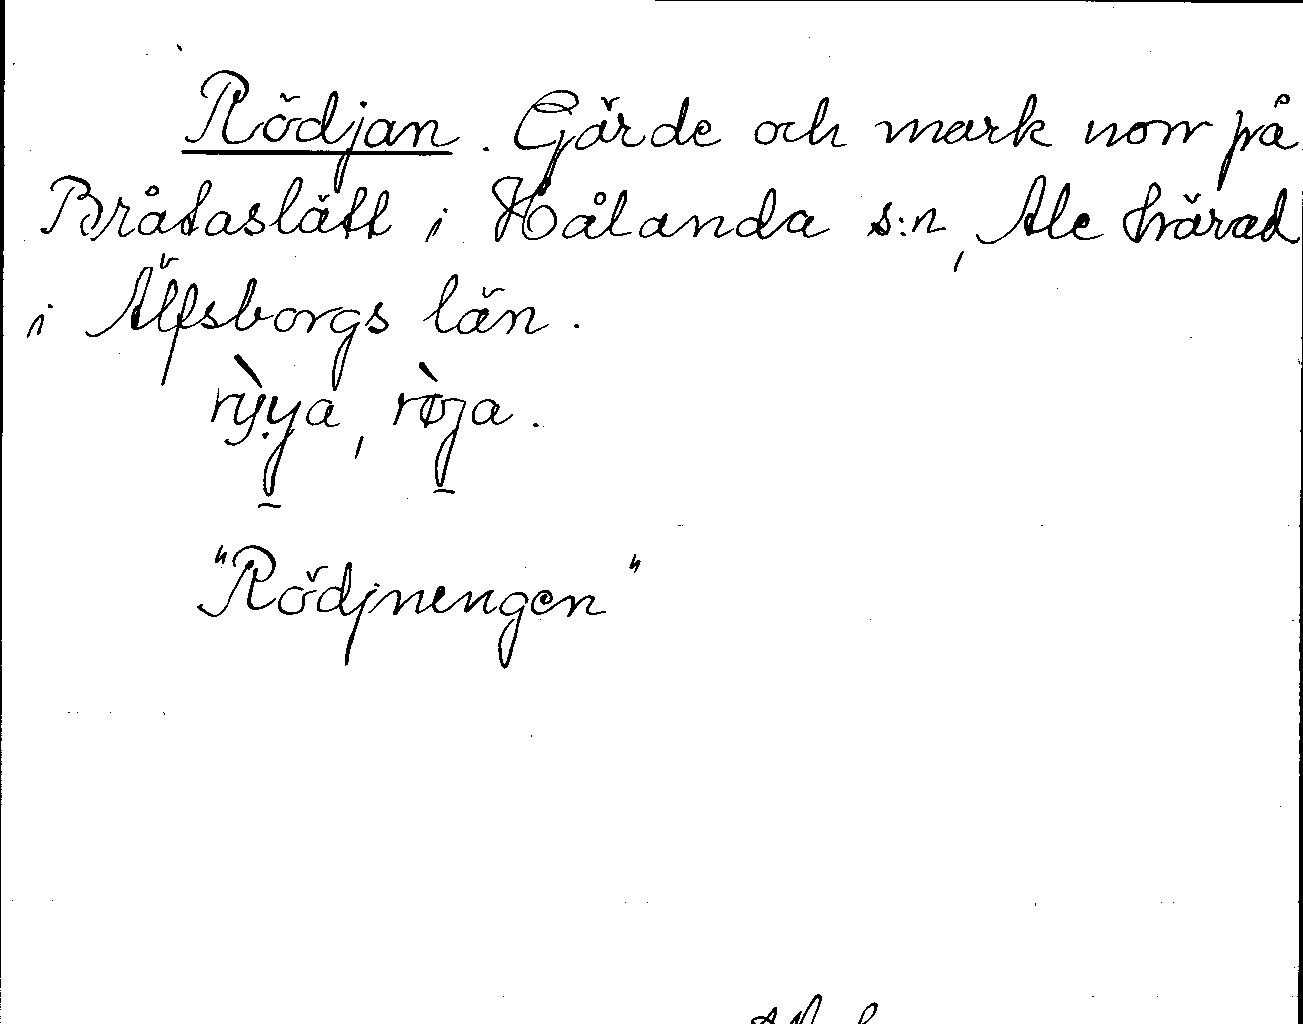 Rödjan. Gärde och mark norr på
Bråtaslätt i Hålanda s:n, Ale härad
i Älfsborgs län.
rỳya, rø̀ja.
"Rödjnengen"